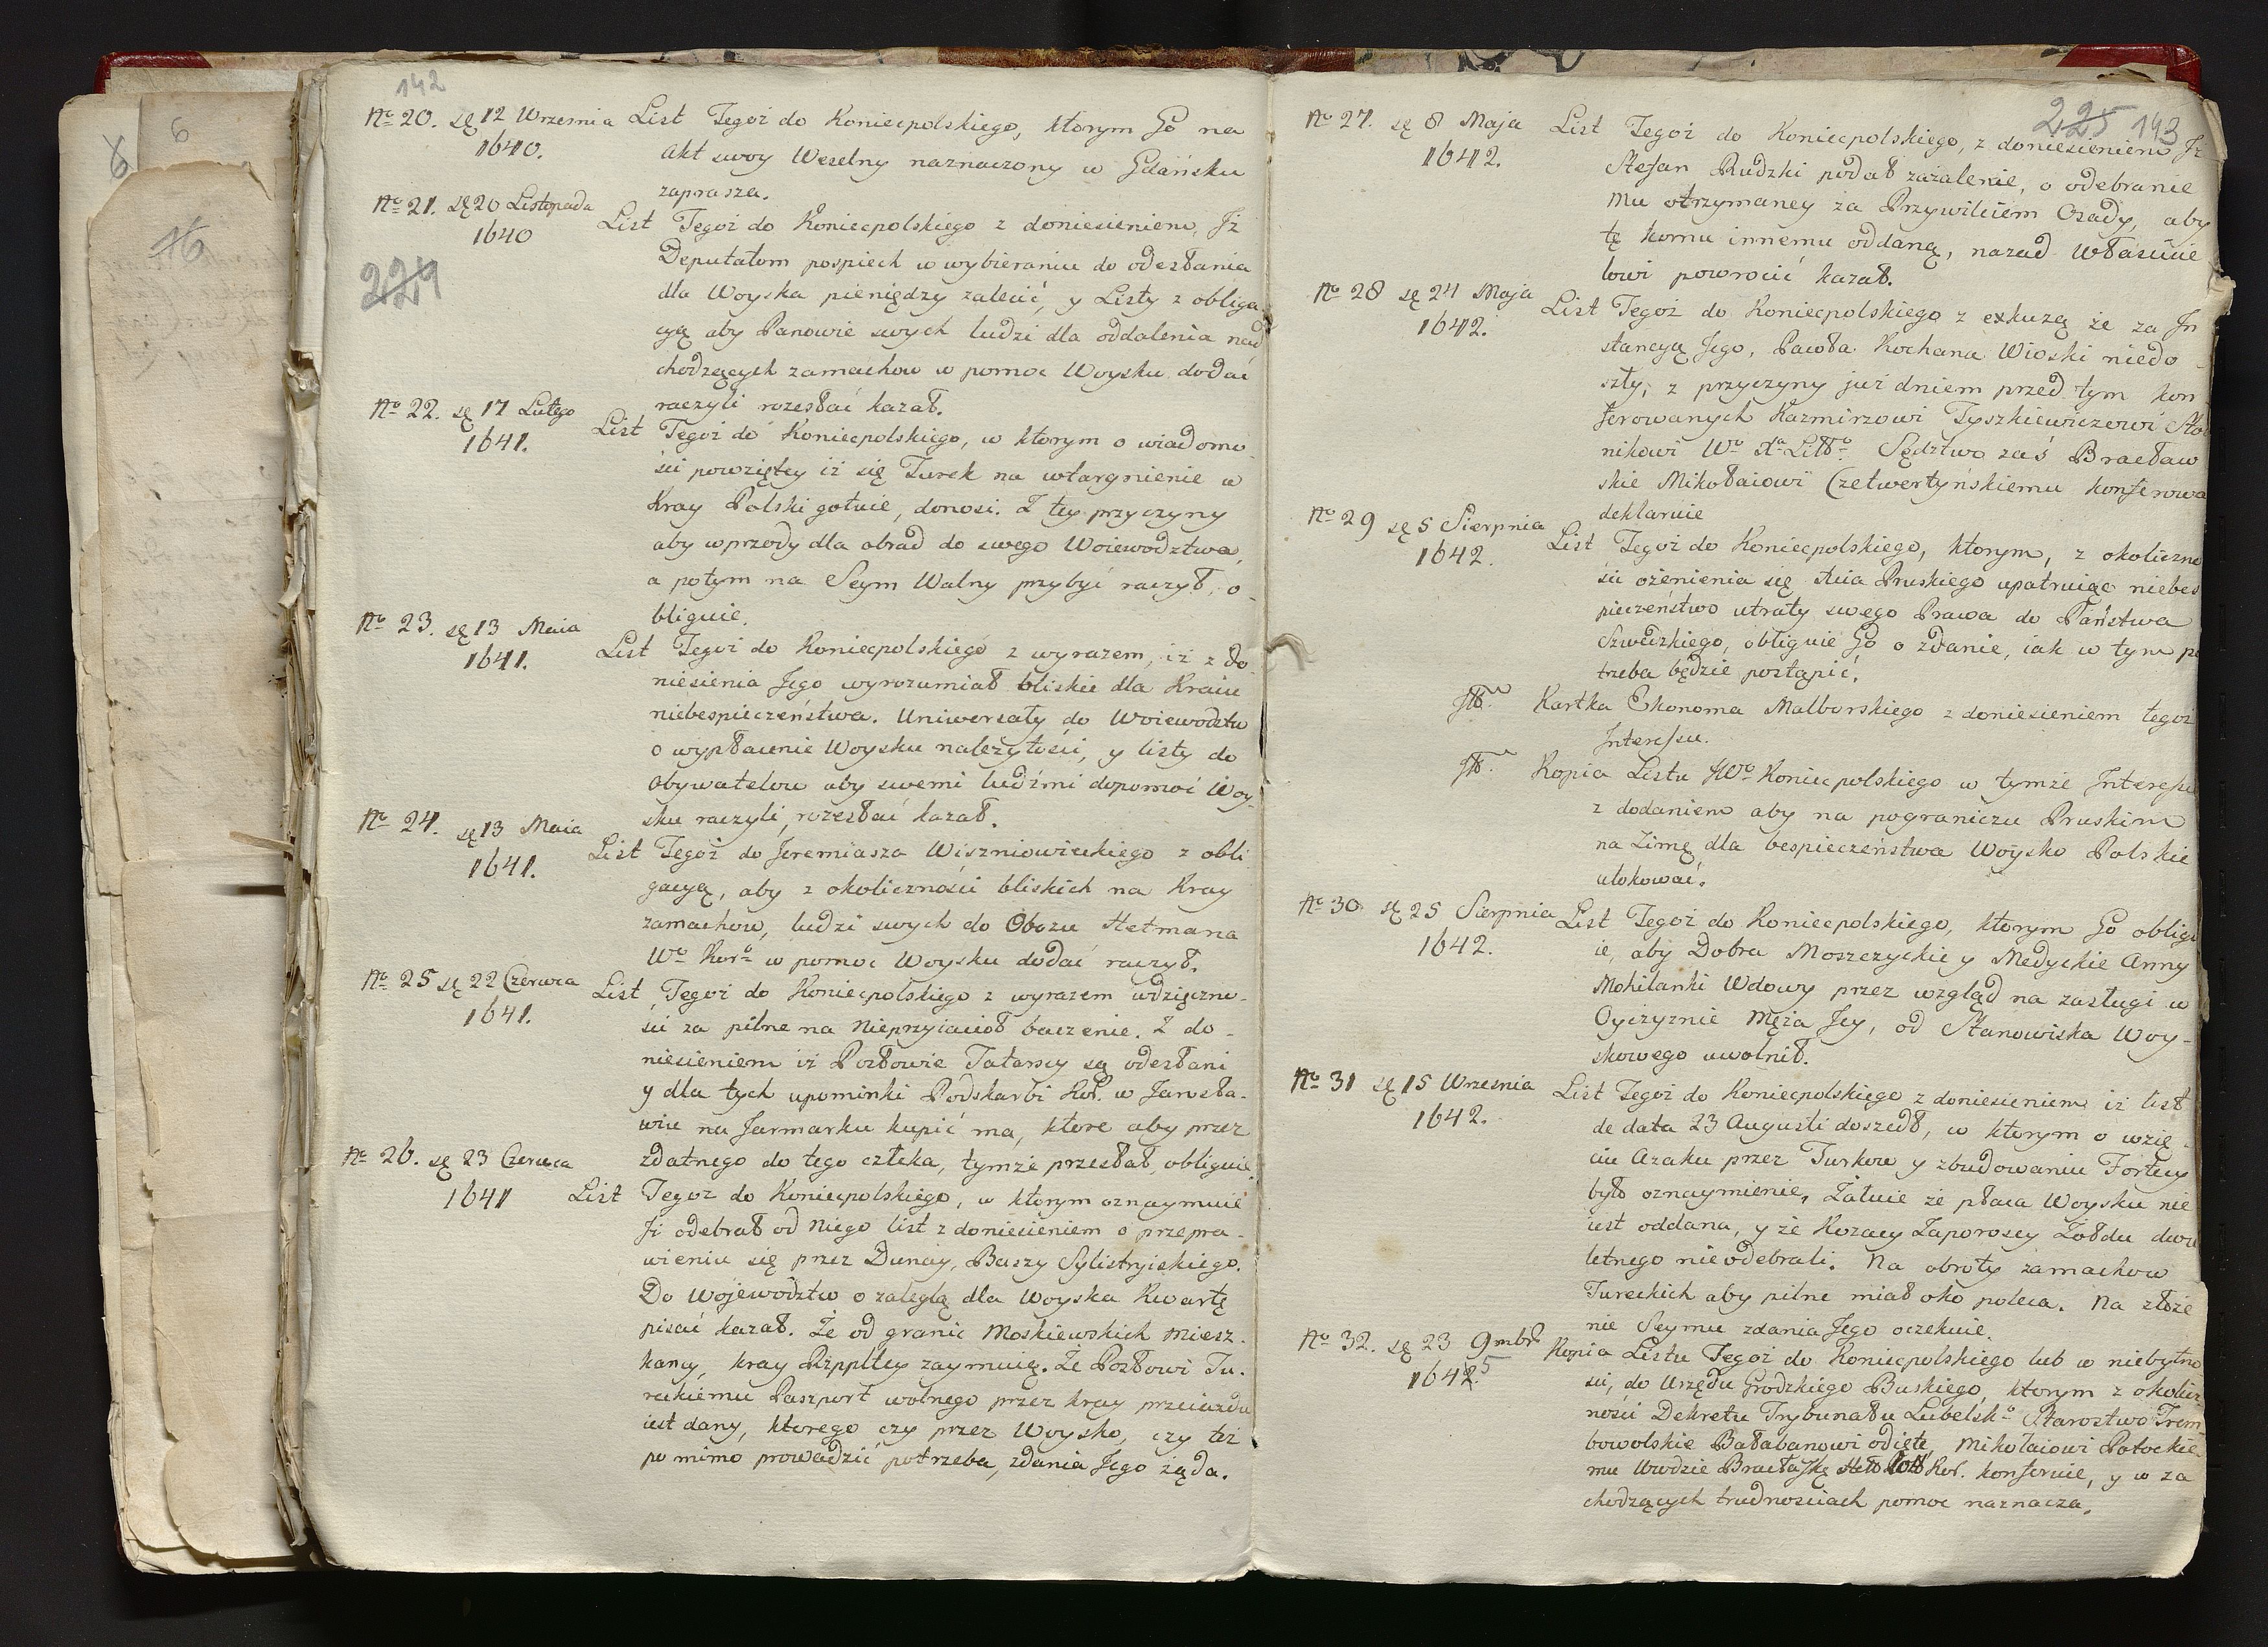 142
№ 20. sę 12 Wrzesnia List Tegoż do Koniecpolskiego, ktorym Go na
1640. Akt swoy Weselny naznaczony w Gdańsku
zaprasza.
№ 21. sę 20 Listopada List Tegoż do Koniecpolskiego z doniesieniem, Jż
1640 Deputatom pospiech w wybieraniu do odesłania
224 dla Woyska pieniędzy zalecić, y Listy z obliga
cyą aby Panowie swych ludzi dla oddalenia nad
chodzących zamachow w pomoc Woysku dodać
raczyli rozesłać kazał.
№ 22. sę 17 Lutego List Tegoż do Koniecpolskiego, w ktorym o wiadomo
1641. ści powziętey iż się Turek na wtargnienie w
Kray Polski gotuie, donosi. Z tey przyczyny
aby wprzody dla obrad do swego Woiewodztwa,
a potym na Seym Walny przybyć raczył, o-
bliguie.
№ 23. sę 13 Maia List Tegoż do Koniecpolskiego z wyrazem, iż z do
1641. niesienia Jego wyrozumiał bliskie dla Kraiu
niebespieczeństwa. Uniwersały do Woiewodztw
o wypłacenie Woysku należytości, y listy do
Obywatelow aby swemi ludźmi dopomoć Woy-
sku raczyli, rozesłać kazał.
№ 24. sę 13 Maia List Tegoż do Jeremiasza Wiszniowieckiego z obli
1641. gacyą, aby z okoliczności bliskich na Kray
zamachow, ludzi swych do Obozu Hetmana
Wo Koro w pomoc Woysku dodać raczył.
№ 25 sę 22 Czerwca List Tegoż do Koniecpolskiego z wyrazem wdzięczno-
1641. ści za pilne na Nieprzyiacioł baczenie. Z do-
niesieniem iż Posłowie Tatarscy są odesłani
y dla tych upominki Podskarbi Kor. w Jarosła-
wiu na Jarmarku kupić ma, ktore aby przez
№ 26. sę 23 Czerwca zdatnego do tego człeka, tymże przesłał, obliguie
1641 List Tegoż do Koniecpolskiego, w ktorym oznaymuie
Jż odebrał od Niego list z doniesieniem o przepra-
wieniu się przez Dunay, Baszy Sylistryiskiego.
Do Wojewodztw o zaległą dla Woyska Kwartę
pisać kazał. Że od granic Moskiewskich miesz-
kancy, kray Rzppltey zaymuią. Że Posłowi Tu-
reckiemu Paszport wolnego przez kray przeiazdu
iest dany, ktorego czy przez Woysko, czy też
po mimo prowadzić potrzeba, zdania Jego żąda.
225 143
№ 27. sę 8 Maja List Tegoż do Koniecpolskiego, z doniesieniem Jż
1642. Stefan Rudzki podał zażalenie, o odebranie
mu otrzymaney za Przywileiem Osady, aby
tę komu innemu oddaną, nazad Właścicie
lowi powrocić kazał.
№ 28 sę 24 Maja List Tegoż do Koniecpolskiego z exkuzą że za In
1642. stancyą Jego, Pawła Kochana Wioski niedo-
szły, z przyczyny już dniem przed tym kon
ferowanych Kazmirzowi Tyszkiewiczowi Sto
nikowi Wo Xa Litto. Sędztwo zaś Bracław
skie Mikołaiowi Czetwertyńskiemu konferowa
deklaruie
№ 29 sę 5 Sierpnia List Tegoż do Koniecpolskiego, ktorym, z okoliczno
1642. ści ożenienia się Xcia Pruskiego upatruiąc niebes
pieczeństwo utraty swego Prawa do Państwa
Szwedzkiego, obliguie Go o zdanie, iak w tym po
trzeba będzie postąpić.
Kartka Ekonoma Malborskiego z doniesieniem tegoż
Interessu.
Kopia Listu JWo Koniecpolskiego w tymże Interessu
z dodaniem aby na pograniczu Pruskim
na Zimę dla bespieczeństwa Woysko Polskie
ulokować.
№ 30. sę 25 Sierpnia List Tegoż do Koniecpolskiego, ktorym Go obligu
1642. ie, aby Dobra Moszczyckie y Medyckie Anny
Mohilanki Wdowy przez wzgląd na zasługi w
Oyczyznie Męża Jey, od Stanowiska Woy-
skowego uwolnił.
№ 31 sę 15 Wrzesnia List Tegoż do Koniecpolskiego z doniesieniem iż list
1642. de data 23 Augusti doszedł, w ktorym o wzię-
ciu Azaku przez Turkow y zbudowaniu Fortecy
było oznaymienie, Żałuie że płaca Woysku nie
iest oddana, y że Kozacy Zaporoscy Żołdu dwu
letnego nie odebrali. Na obroty zamachow
Tureckich aby pilne miał oko poleca. Na złoże
nie Seymu zdania Jego oczekuie.
№ 32. sę 23 9mbr Kopia Listu Tegoż do Koniecpolskiego lub w niebytno
1645 ści, do Urzędu Grodzkiego Buskiego, ktorym z okolicz
nosci Dekretu Trybunału Lubelsko Starostwo Trem
bowolskie Bałabanowi odięte, Mikołaiowi Potockie
mu Wwdzie Kor. konferuie, y w za
chodzących trudnosciach pomoc naznacza.